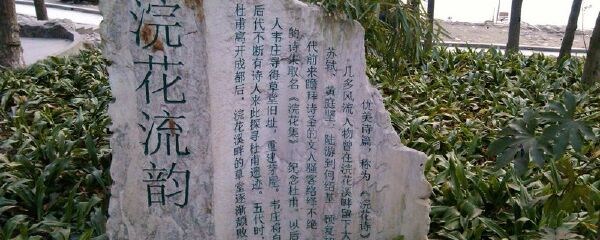 浣花流韵
杜甫离开成都后，浣花溪畔的草堂逐渐颓败
后代不断有诗人来此探寻杜甫遗迹。五代时
人韦庄寻得草堂旧址，重建茅屋，韦庄将自
的诗集取名《浣花集》，纪念杜甫。以后
代前来瞻拜诗圣的文人骚客络绎不绝
苏轼、黄庭坚、陆游到何绍基、顾复初
几多风流人物曾在浣花溪畔留下大
优美诗篇，称为《浣花诗》